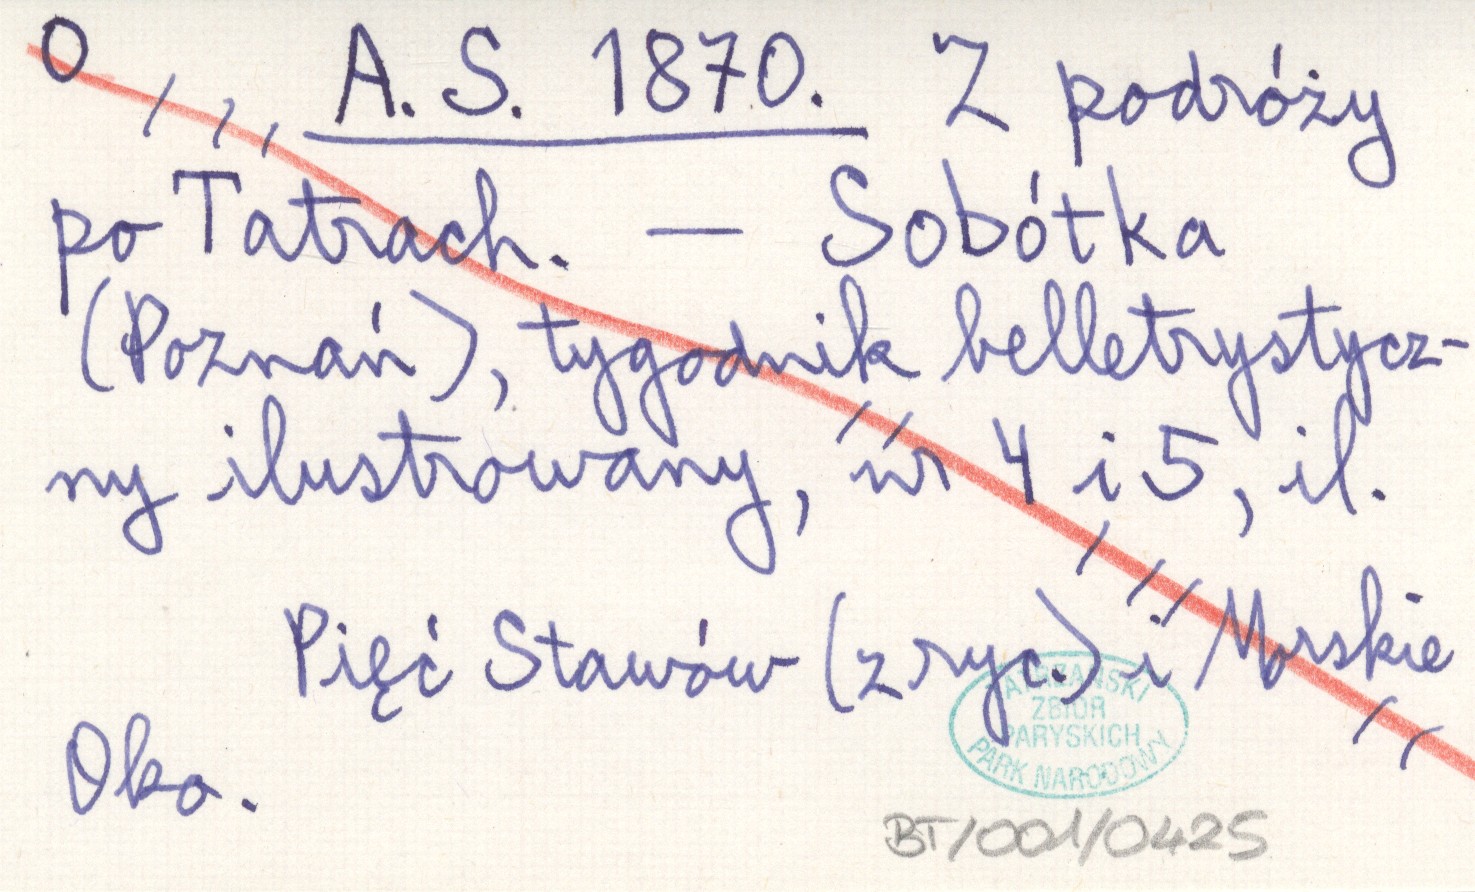 O A. S. 1870. Z podróży
po Tatrach. — Sobótka
(Poznań), tygodnik belletrystycz-
ny ilustrowany, nr 4 i 5, il.
Pięć Stawów (z ryc.) i Morskie
Oko.
TATRZAŃSKI
ZBIÓR
PARYSKICH
PARK NARODOWY
BT/001/0425